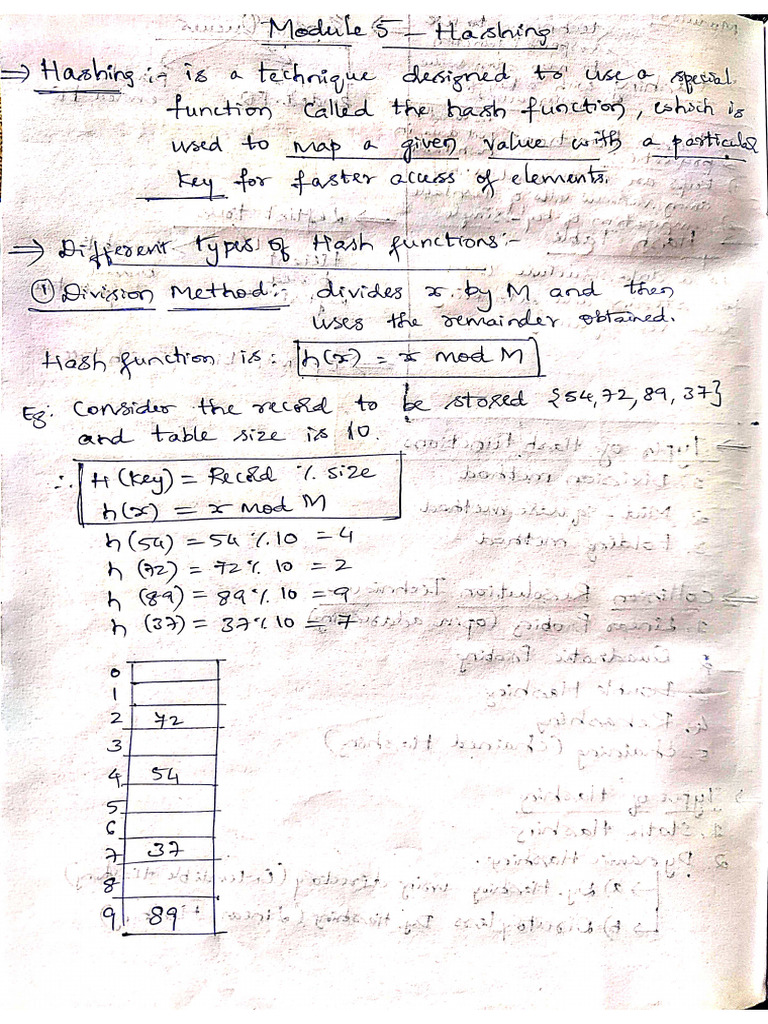 Module 5 - Hashing
⇒ Hashing :- is a technique designed to use a special
function called the hash function, which is
used to map a given value with a particular
key for faster access of elements.
⇒ Different types of Hash functions:-
① Division Method:- divides x by M and then
uses the remainder obtained.
Hash function is: h(x) = x mod M
Eg: Consider the record to be stored {54, 72, 89, 37}
and table size is 10.
∴ H(key) = Record % size
h(x) = x mod M
h(54) = 54 % 10 = 4
h(72) = 72 % 10 = 2
h(89) = 89 % 10 = 9
h(37) = 37 % 10 = 7
0
1
2 72
3
4 54
5
6
7 37
8
9 89